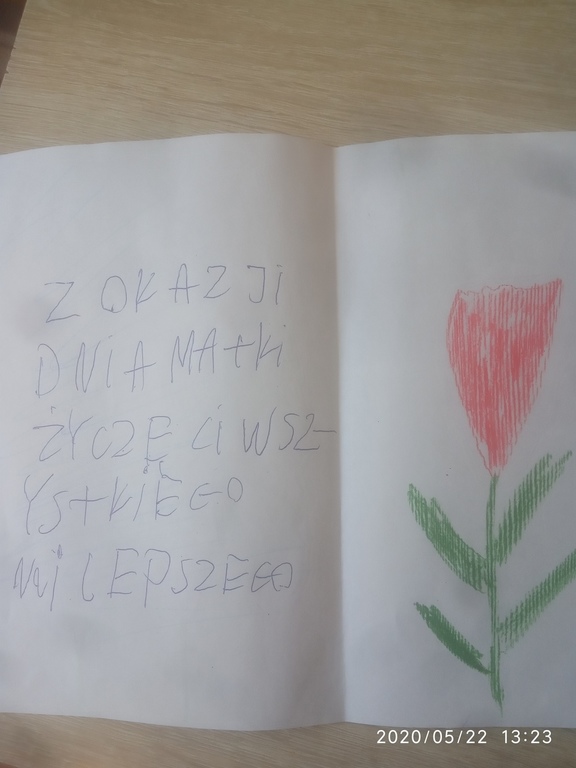 Z OKAZJI
DNiA MAtKi
ŻYCZĘ Ci WSZ-
YStKIEGO
NAjLEPSZEGO
2020/05/22 13:23